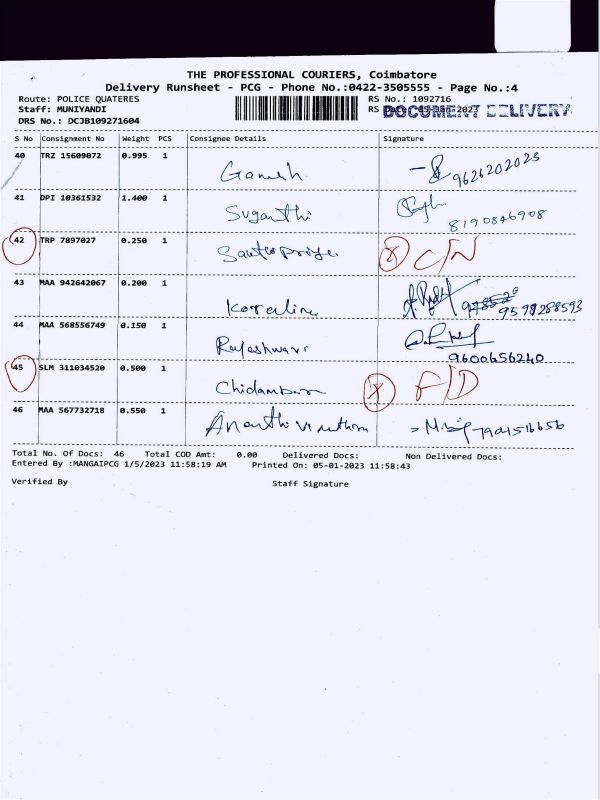 THE PROFESSIONAL COURIERS, Coimbatore
Delivery Runsheet - PCG - Phone No.:0422-3505555 - Page No.:4
Route: POLICE QUATERES RS No.: 1092716
Staff: MUNIYANDI RS DOCUMENT DELIVERY
DRS No.: DCJB109271604
S No Consignment No Weight PCS Consignee Details Signature
40 TRZ 15609072 0.995 1 Ganesh 9626202023
41 DPI 10361532 1.400 1 Suganthi 8190846908
42 TRP 7897027 0.250 1 X C/N
43 MAA 942642067 0.200 1 9598288593
44 MAA 568556749 0.150 1 Rajeshwari 9600656240
45 SLM 311034520 0.500 1 Chidambaram X F/D
46 MAA 567732718 0.550 1
Total No. Of Docs: 46 Total COD Amt: 0.00 Delivered Docs: Non Delivered Docs:
Entered By :MANGAIPCG 1/5/2023 11:58:19 AM Printed On: 05-01-2023 11:58:43
Verified By Staff Signature